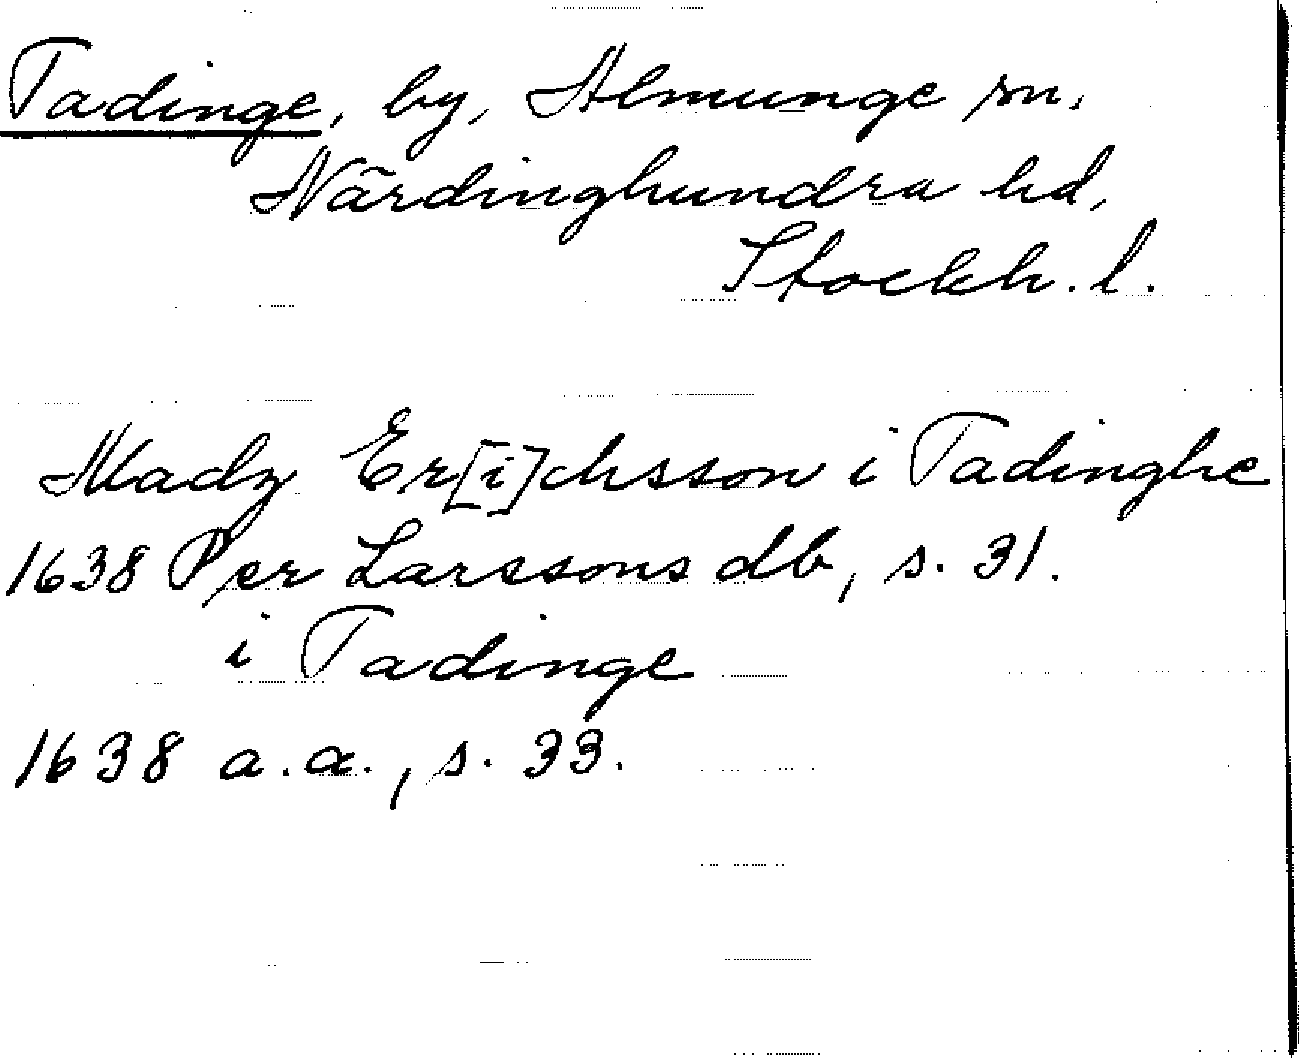 Tadinge, by, Almunge sn.
Närdinghundra hd,
Stockh. l.
Madz Er[i]chsson i Tadinghe
1638 Per Larssons db, s. 31.
i Tadinge
1638 a.a., s. 33.